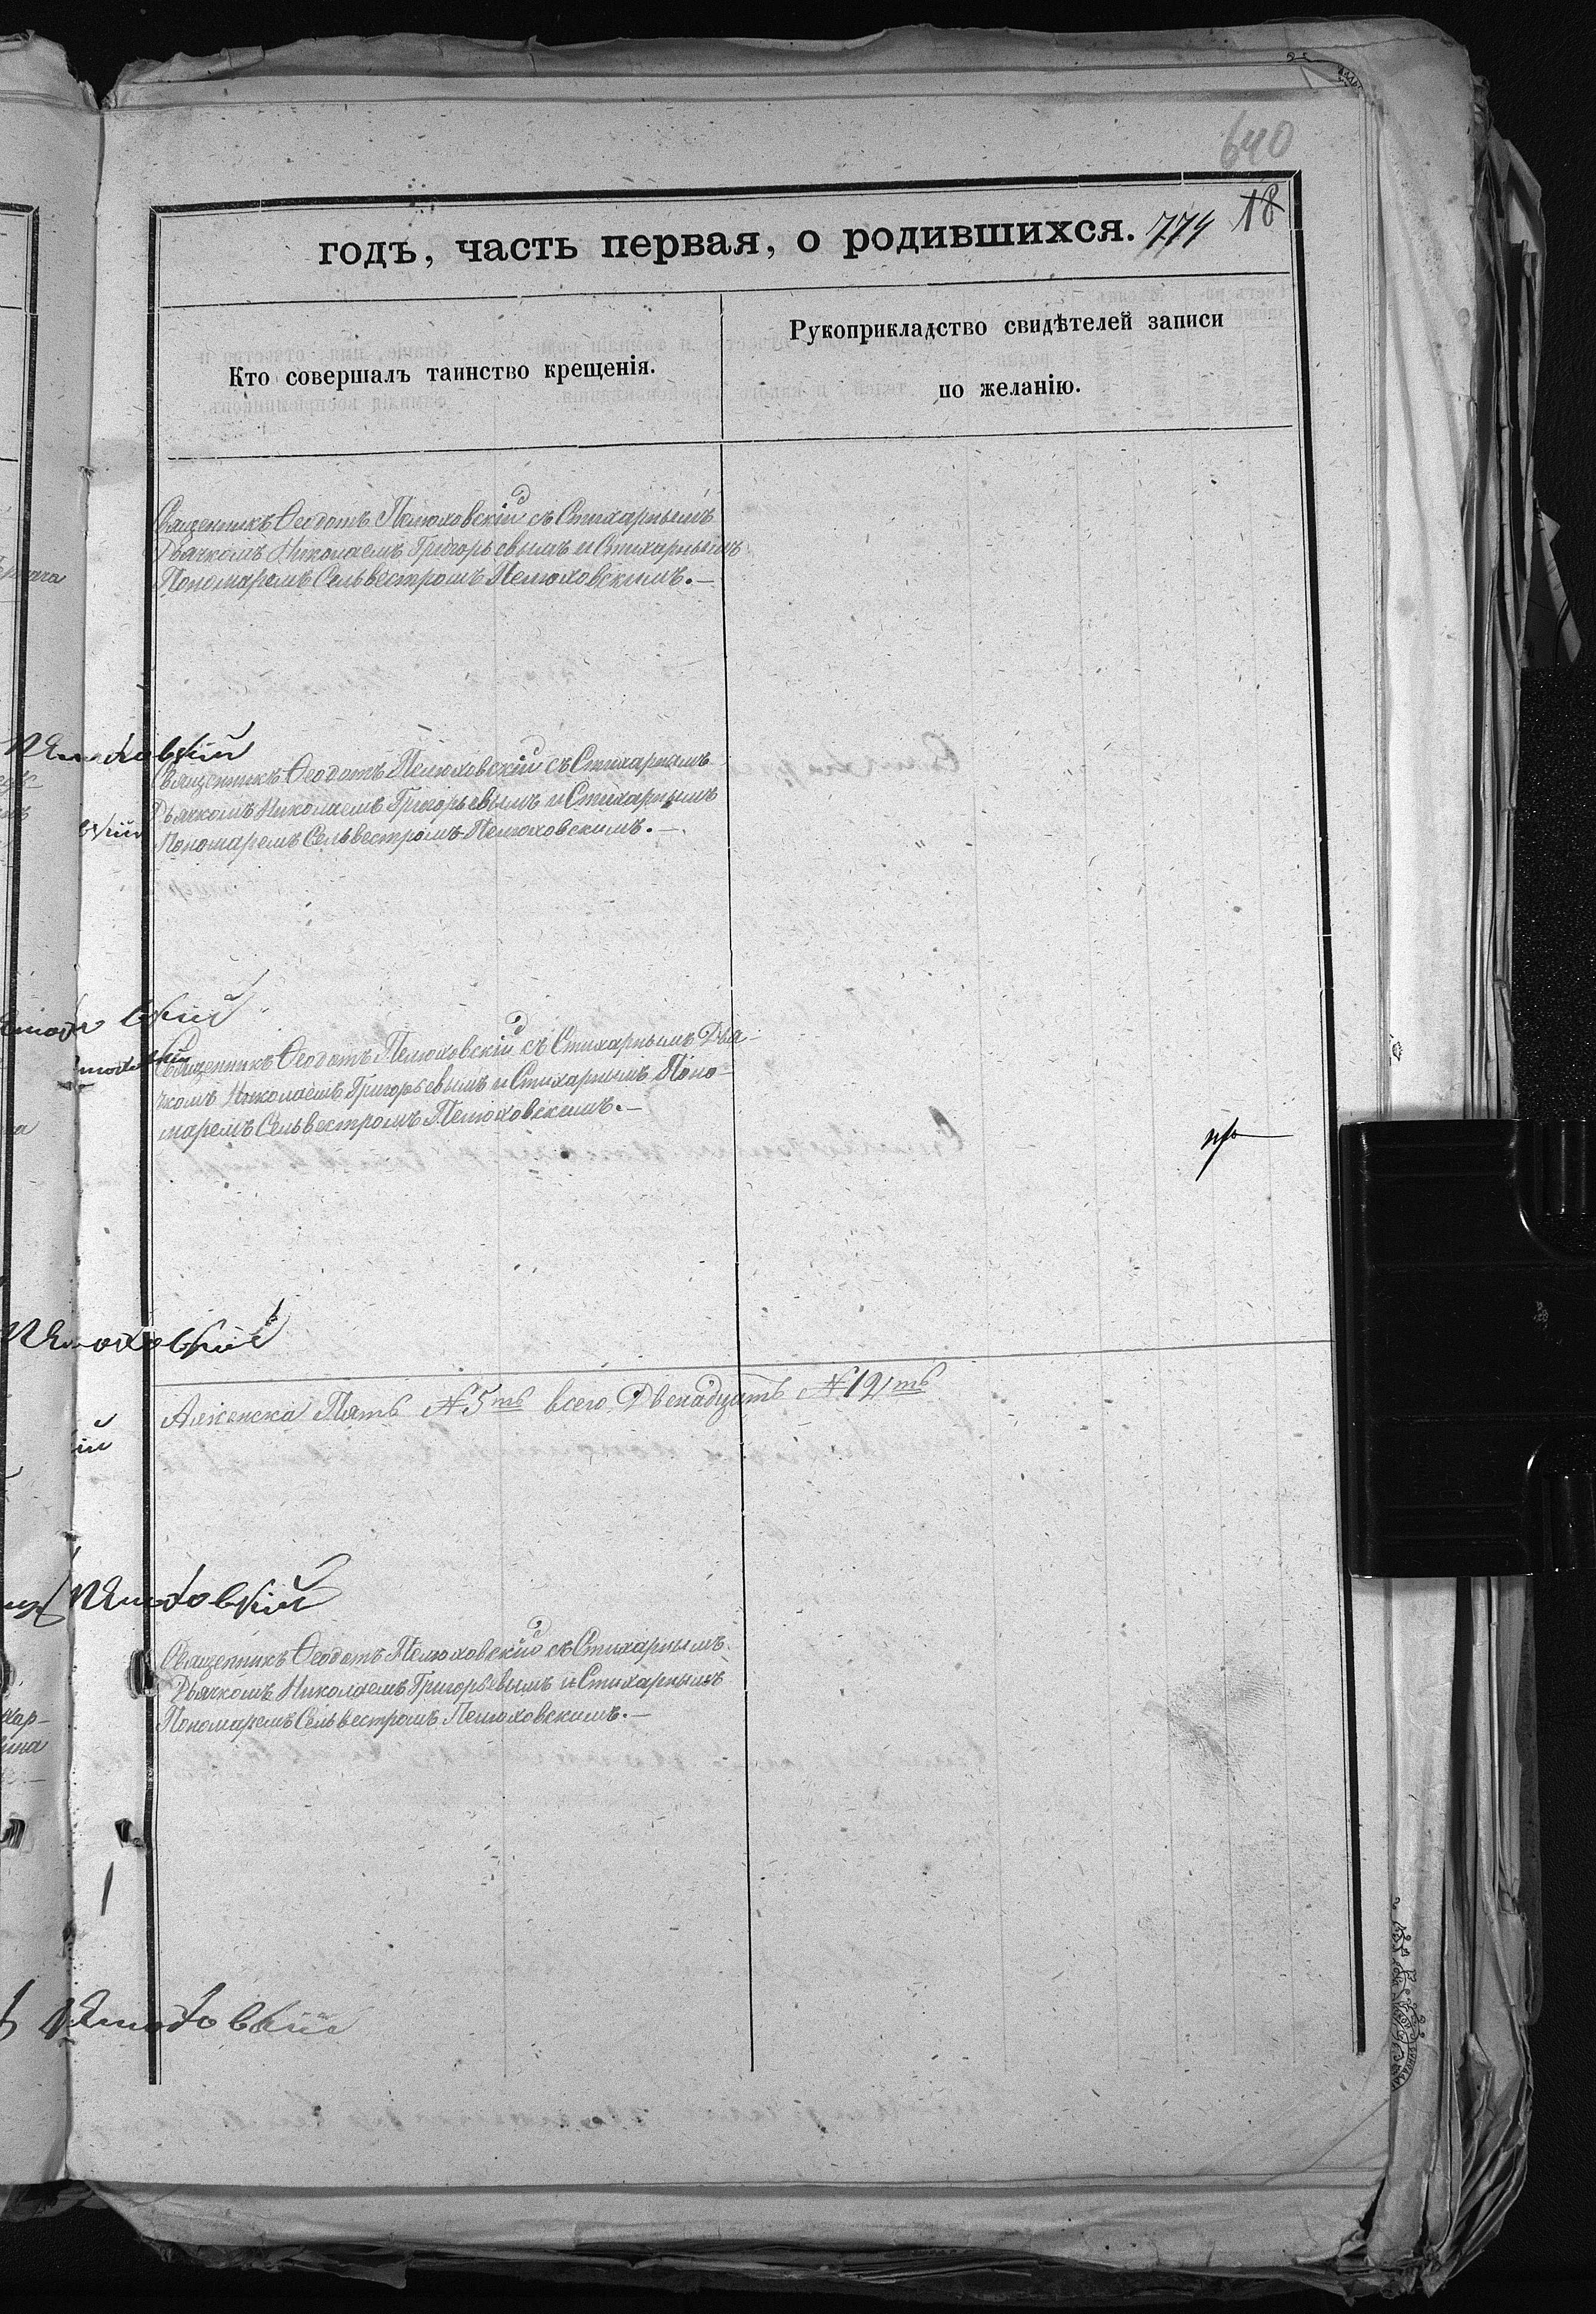 640
годъ, часть первая, о родившихся. 774 18
Кто совершалъ таинство крещенія.
Рукоприкладство свидѣтелей записи
по желанію.
Священникъ Ѳеодотъ Пелюховскій съ Стихарнымъ
Дьячкомъ Николаемъ Григорьевымъ и Стихарнымъ
Пономаремъ Сельвестромъ Пелюховскимъ.—
Священникъ Ѳеодотъ Пелюховскій съ Стихарнымъ
Дьячкомъ Николаемъ Григорьевымъ и Стихарнымъ
Пономаремъ Сельвестромъ Пелюховскимъ.—
Священникъ Ѳеодотъ Пелюховскій съ Стихарнымъ Дья-
чкомъ Николаемъ Григорьевымъ и Стихарнымъ Поно-
маремъ Сельвестромъ Пелюховскимъ.—
А женска Пять №5ть всего Двенадцать №12ть
Священникъ Ѳеодотъ Пелюховскій съ Стихарнымъ
Дьячкомъ Николаемъ Григорьевымъ и Стихарнымъ
Пономаремъ Сельвестромъ Пелюховскимъ.—